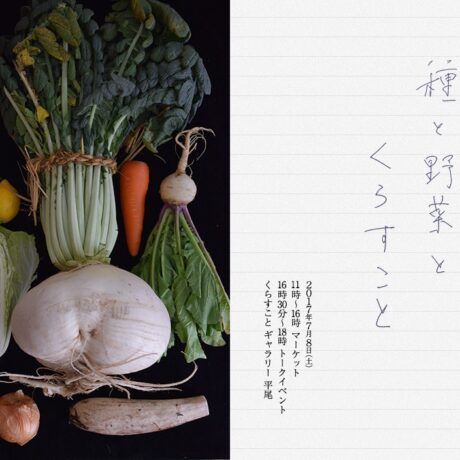 種と野菜と
くらすこと
2017年7月8日(土)
11時〜16時 マーケット
16時30分〜18時 トークイベント
くらすことギャラリー 平尾